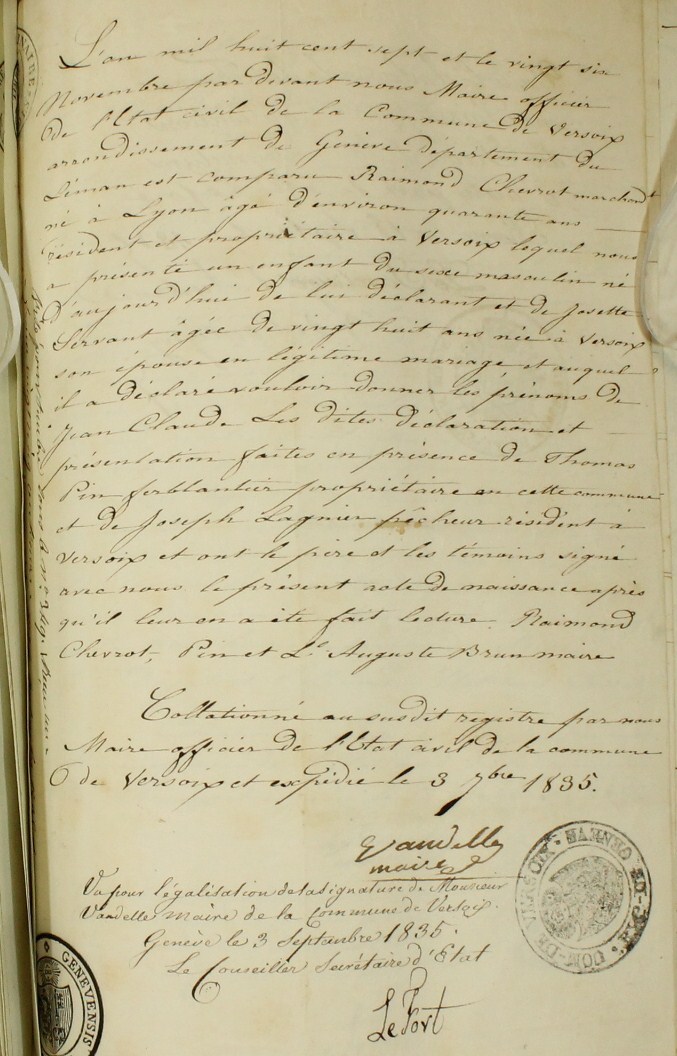 L'an mil huit cent sept et le vingt six
Novembre par devant nous Maire officier
de l'Etat civil de la Commune de Versoix
arrondissement de Genève département du
Léman est comparu Raimond Chevrot marchand
né à Lyon âgé d'environ quarante ans
résident et propriétaire à Versoix lequel nous
a présenté un enfant du sexe masculin né
d'aujourd'hui de lui déclarant et de Josette
Servant âgée de vingt huit ans née à Versoix
son épouse en légitime mariage et auquel
il a déclaré vouloir donner les prénoms de
Jean Claude Les dites déclaration et
présentation faites en présence de Thomas
Pin ferblantier propriétaire en cette commune
et de Joseph Lagnier pêcheur résident à
Versoix et ont le père et les témoins signé
avec nous le présent acte de naissance après
qu'il leur en a été fait lecture. Raimond
Chevrot, Pin et Ls Auguste Brun maire
Collationné au susdit registre par nous
Maire officier de l'Etat civil de la commune
de Versoix et expédié le 3 7bre 1835.
Vandelle
maire
Vu pour légalisation de la signature de Monsieur
Vandelle Maire de la Commune de Versoix.
Genève le 3 Septembre 1835.
Le Conseiller Secrétaire d'Etat
Le Fort
COM-DE VERSOIX
GENEVENSIS